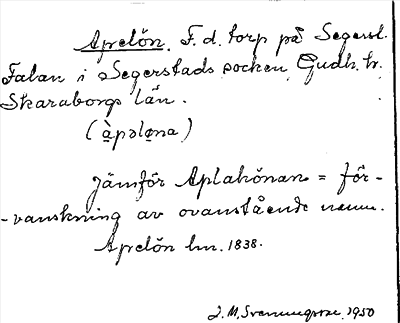 Apelön. F. d. torp på Segerst.
Falan i Segerstads socken, Gudh. hr.
Skaraborgs län.
(àpəløna)
Jämför Aplahönan = för-
-vanskning av ovanstående namn.
Apelön hm. 1838.
J. M. 1950